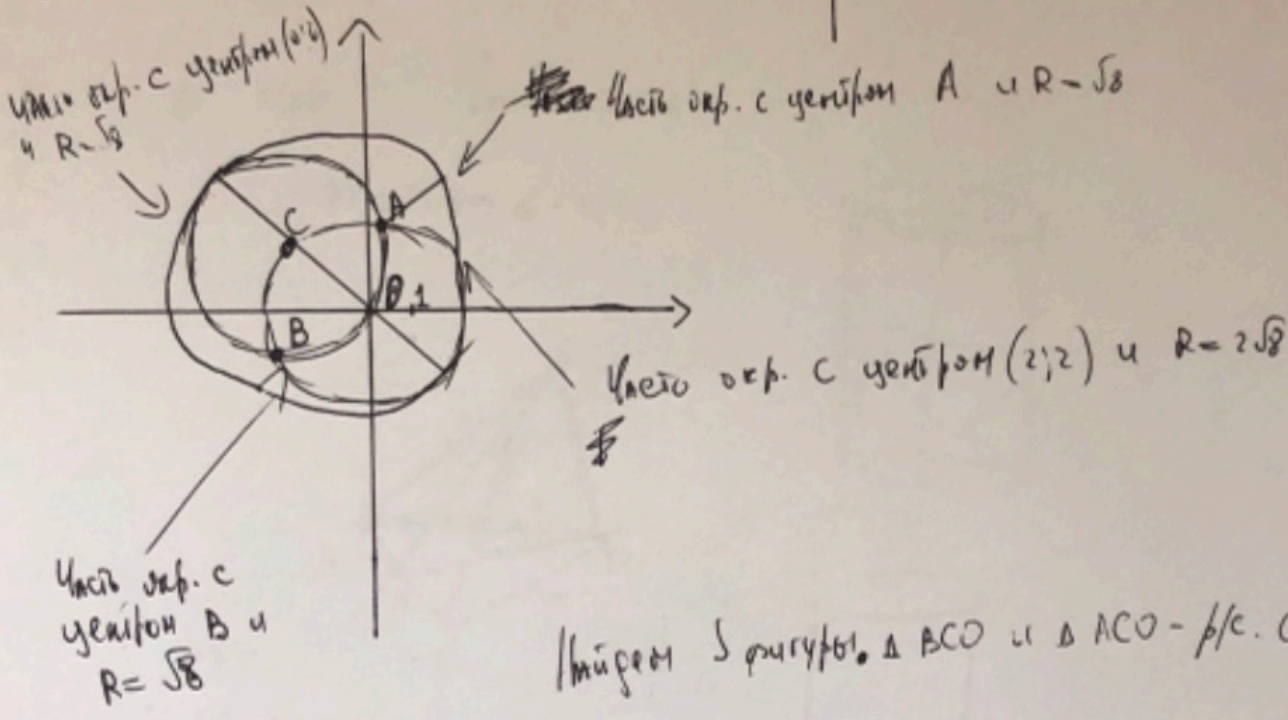 Часть окр. с центром (0;0)
и R = √8
Часть окр. с центром A и R = √8
C
A
B
1
Часть окр. с центром (2;2) и R = 2√8
Часть окр. с
центром B и
R = √8
Найдем S фигуры. Δ BCO и Δ ACO - р/с.